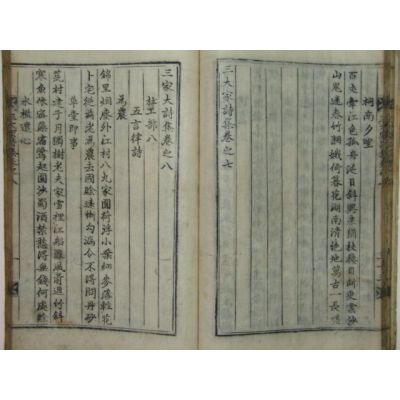 祠南夕望
百丈牽江色孤舟泛日斜興來猶杖屨目斷更雲沙
山鬼迷春竹湘娥倚暮花湖南清絶地萬古一長嗟
三大家詩集卷之七
三家大詩集卷之八
杜工部八
五言律詩
爲農
錦里烟塵外江村八九家圓荷浮小葉細麥落輕花
卜宅從玆老爲農去國賖遠慚勾漏令不得問丹砂
草堂即事
荒村建子月獨樹老夫家雪裡江船渡風前逕竹斜
寒魚依密藻宿鷺起圓沙蜀酒禁愁得無錢何處賖
水檻遣心